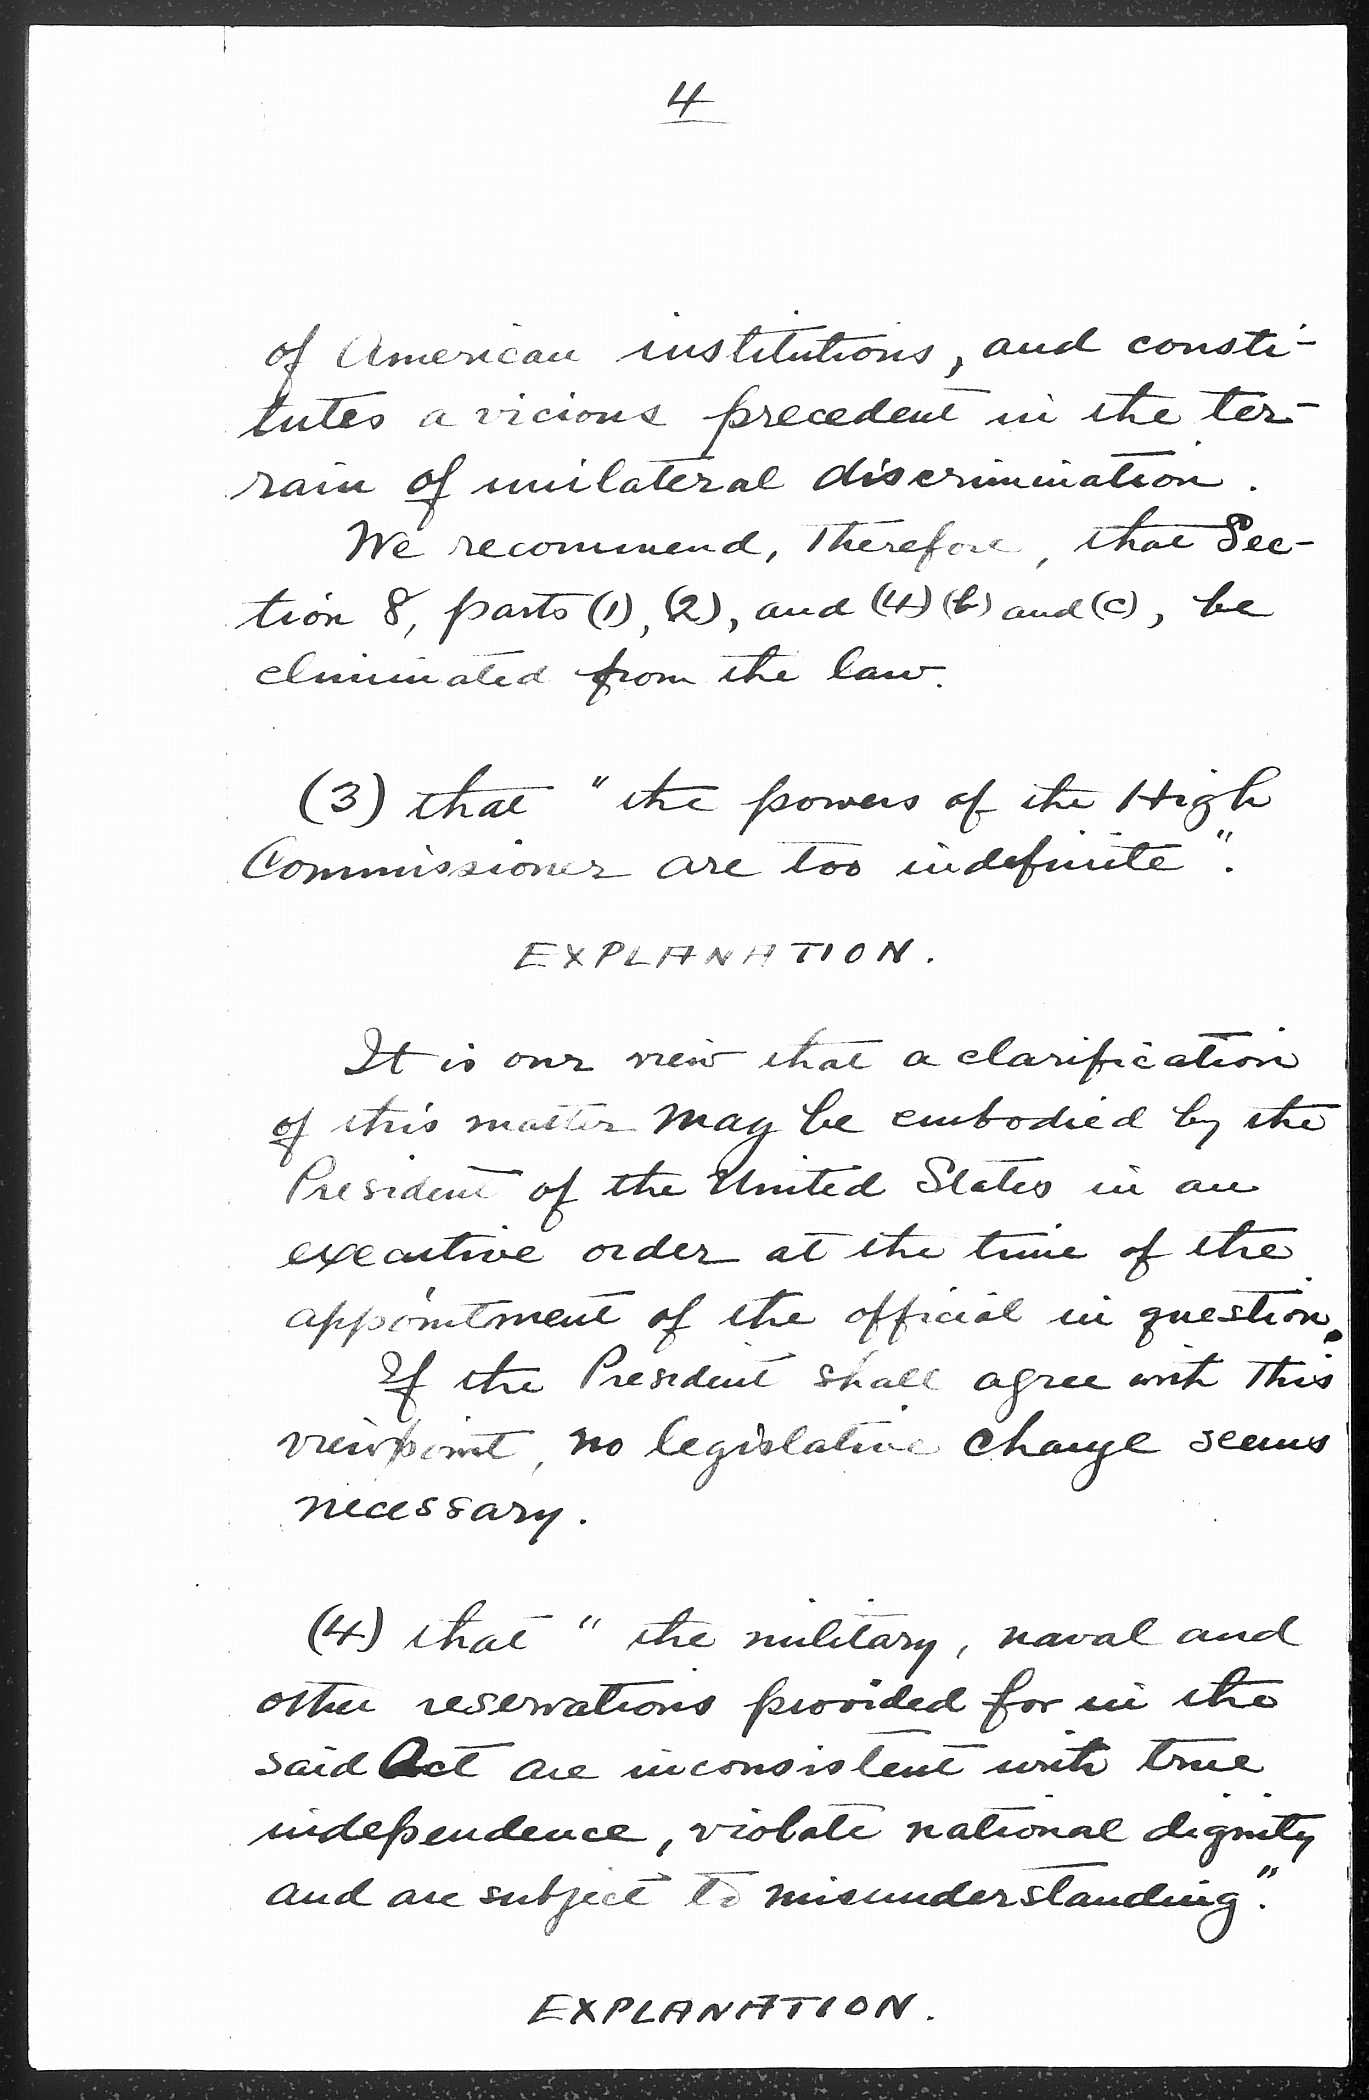 4
of American institutions, and consti-
tutes a vicious precedent in the ter-
rain of unilateral discrimination.
We recommend, therefore, that Sec-
tion 8, parts (1), (2), and (4) (b) and (c), be
eliminated from the law.
(3) that "the powers of the High
Commissioner are too indefinite".
EXPLANATION.
It is our view that a clarification
of this matter may be embodied by the
President of the United States in an
executive order at the time of the
appointment of the official in question.
If the President shall agree with this
viewpoint, no legislative change seems
necessary.
(4) that "the military, naval and
other reservations provided for in the
said Act are inconsistent with true
independence, violate national dignity
and are subject to misunderstanding".
EXPLANATION.